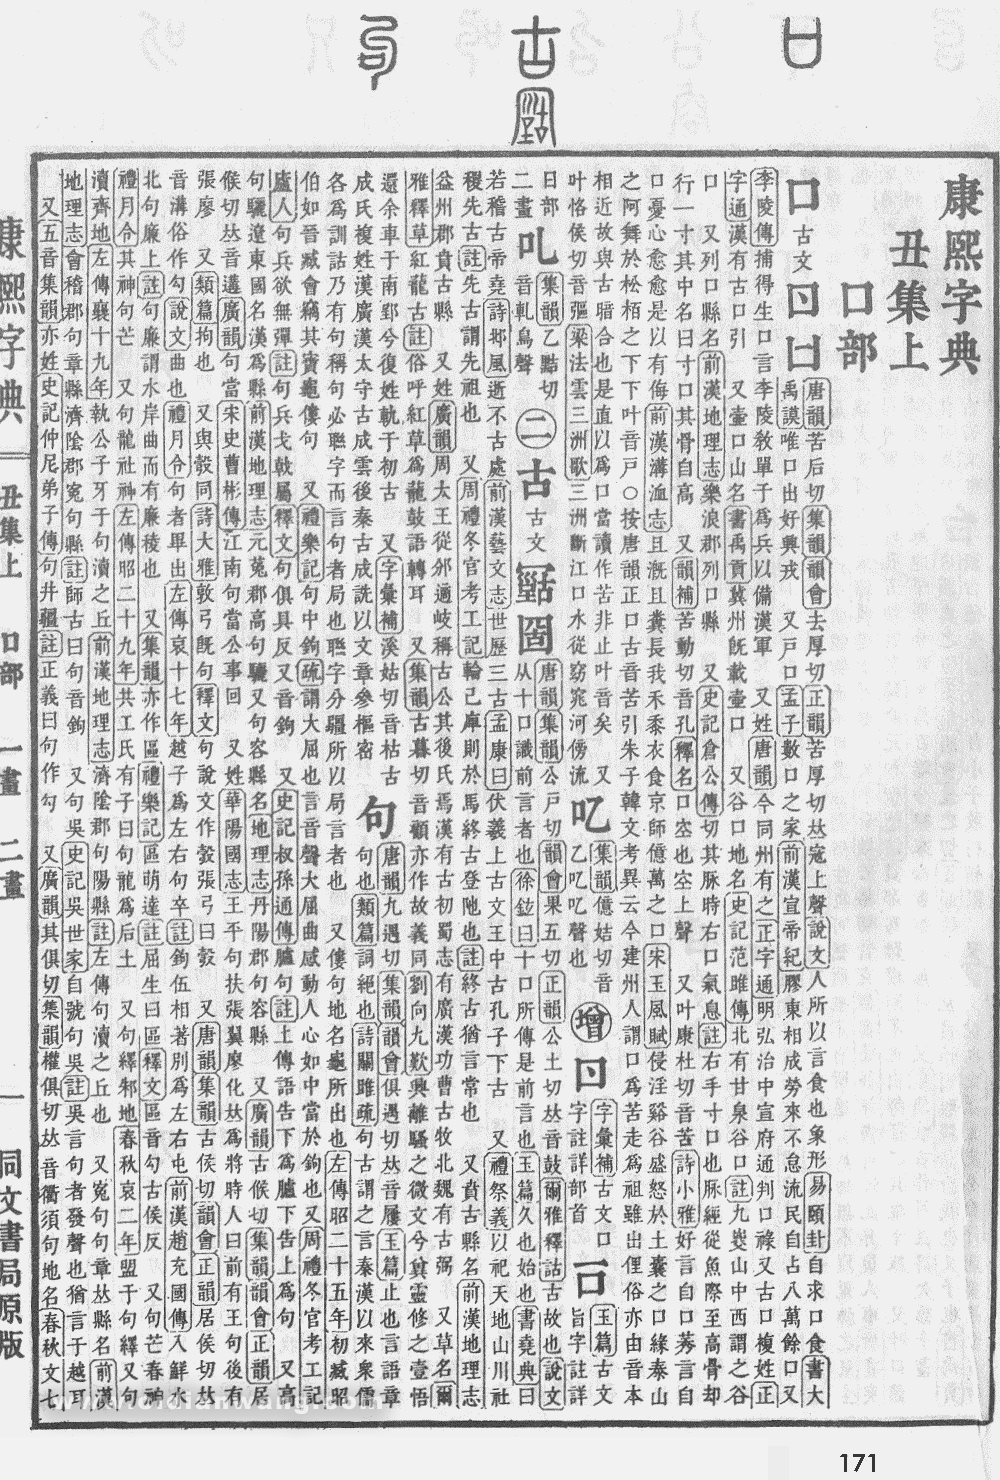 康熙字典
丑集上
口部
口
古文
唐韻苦后切集韻韻會去厚切正韻苦厚切𠀤寇上聲說文人所以言食也象形易頤卦自求口食書大
禹謨唯口出好興戎 又戸口孟子數口之家前漢宣帝紀膠東相成勞來不怠流民自占八萬餘口 又
李陵傳捕得生口言李陵敎單于爲兵以備漢軍 又姓唐韻今同州有之正字通明弘治中宣府通判口祿又古口複姓正
字通漢有古口引 又壷口山名書禹貢冀州旣載壷口 又谷口地名史記范雎傳北有甘泉谷口註九嵏山中西謂之谷
口 又列口縣名前漢地理志樂浪郡列口縣 又史記倉公傳切其脈時右口氣急註右手寸口也脈經從魚際至高骨却
行一寸其中名曰寸口其骨自高 又韻補苦動切音孔釋名口空也空上聲 又叶康杜切音苦詩小雅好言自口莠言自
口憂心愈愈是以有侮前漢溝洫志且漑且糞長我禾黍衣食京師億萬之口宋玉風賦侵淫谿谷盛怒於土囊之口緣泰山
之阿舞於松栢之下下叶音戸○按唐韻正口古音苦引朱子韓文考異云今建州人謂口爲苦走爲祖雖出俚俗亦由音本
相近故與古暗合也是直以爲口當讀作苦非止叶音矣 又
叶恪侯切音彄梁法雲三洲歌三洲斷江口水從窈窕河傍流
集韻億姞切音
乙吃吃聲也
增
字彙補古文口
字註詳部首
玉篇古文
旨字註詳
日部
二畫
集韻乙黠切
音軋鳥聲
二
古
古文
唐韻集韻公戸切韻會果五切正韻公土切𠀤音鼓爾雅釋詁古故也說文
从十口識前言者也徐鉉曰十口所傳是前言也玉篇久也始也書堯典曰
若稽古帝堯詩邶風逝不古處前漢藝文志世歷三古孟康曰伏羲上古文王中古孔子下古 又禮祭義以祀天地山川社
稷先古註先古謂先祖也 又周禮冬官考工記輪已庳則於馬終古登阤也註終古猶言常也 又賁古縣名前漢地理志
益州郡賁古縣 又姓廣韻周太王從邠適岐稱古公其後氏焉漢有古初蜀志有廣漢功曹古牧北魏有古弼 又草名爾
雅釋草紅龍古註俗呼紅草爲龍鼓語轉耳 又集韻古暮切音顧亦作故義同劉向九歎興離騷之微文兮冀靈修之壹悟
還余車于南郢兮復姓軌于初古 又字彙補溪姑切音枯古
成氏複姓漢廣漢太守古成雲後秦古成詵以文章參樞密
句
唐韻九遇切集韻韻會俱遇切𠀤音屨玉篇止也言語章
句也類篇詞絕也詩關雎疏句古謂之言秦漢以來衆儒
各爲訓詁乃有句稱句必聯字而言句者局也聯字分疆所以局言者也 又僂句地名龜所出也左傳昭二十五年初臧昭
伯如晉臧會竊其寶龜僂句 又禮樂記句中鉤疏謂大屈也言音聲大屈曲感動人心如中當於鉤也又周禮冬官考工記
廬人句兵欲無彈註句兵戈戟屬釋文句俱具反又音鉤 又史記叔孫通傳臚句註上傳語告下爲臚下告上爲句 又高
句驪遼東國名漢爲縣前漢地理志元菟郡高句驪又句容縣名地理志丹陽郡句容縣 又廣韻古候切集韻韻會正韻居
候切𠀤音遘廣韻句當宋史曹彬傳江南句當公事回 又姓華陽國志王平句扶張翼廖化𠀤爲將時人曰前有王句後有
張廖 又類篇拘也 又與彀同詩大雅敦弓旣句釋文句說文作彀張弓曰彀 又唐韻集韻古侯切韻會正韻居侯切𠀤
音溝俗作勾說文曲也禮月令句者畢出左傳哀十七年越子爲左右句卒註鉤伍相著別爲左右屯前漢趙充國傳入鮮水
北句廉上註句廉謂水岸曲而有廉稜也 又集韻亦作區禮樂記區萌達註屈生曰區釋文區音勾古侯反 又句芒春神
禮月令其神句芒 又句龍社神左傳昭二十九年共工氏有子曰句龍爲后土 又句繹邾地春秋哀二年盟于句繹又句
瀆齊地左傳襄十九年執公子牙于句瀆之丘前漢地理志濟陰郡句陽縣註左傳句瀆之丘也 又冤句句章𠀤縣名前漢
地理志會稽郡句章縣濟陰郡冤句縣註師古曰句音鉤 又句吳史記吳世家自號句吳註吳言句者發聲也猶言于越耳
又五音集韻亦姓史記仲尼弟子傳句井疆註正義曰句作勾 又廣韻其俱切集韻權俱切𠀤音衢須句地名春秋文七
康熙字典 丑集上 口部 一畫 二畫 一 同文書局原版
171